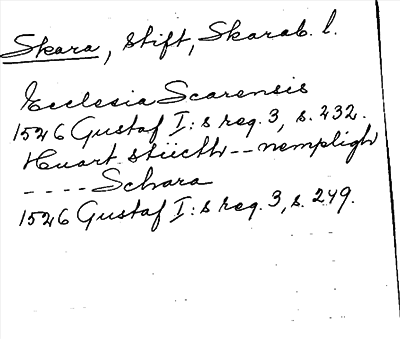 Skara, stift, Skarab. l.
Ecclesia Scarensis
1526 Gustaf I:s reg. 3, s. 232.
Huart stiicth -- nempligh
---- Schara
1526 Gustaf I:s reg. 3, s. 249.